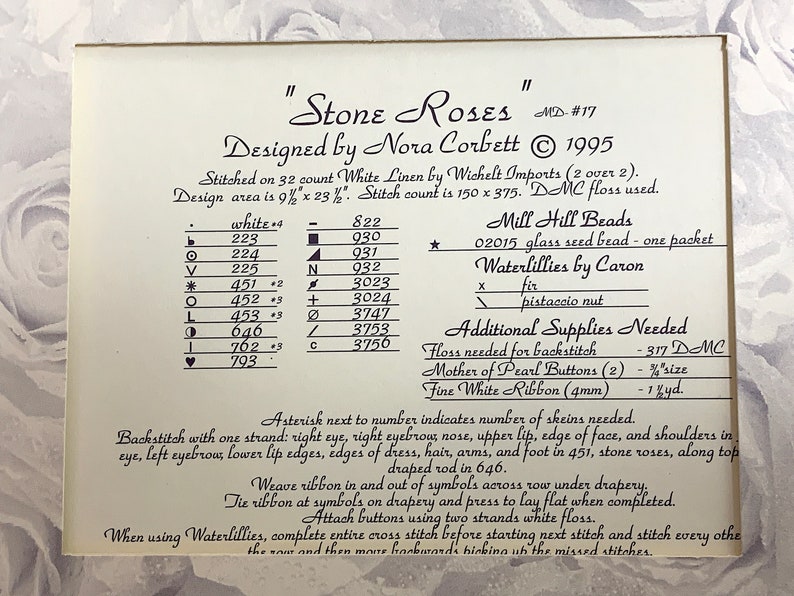 "Stone Roses" MD-#17
Designed by Nora Corbett © 1995
Stitched on 32 count White Linen by Wichelt Imports (2 over 2).
Design area is 9½"x 23½". Stitch count is 150 x 375. DMC floss used.
· white *4
b 223
⊙ 224
V 225
✳ 451 *2
O 452 *3
L 453 *3
◑ 646
I 762 *3
♥ 793
– 822
■ 930
◢ 931
N 932
3023
+ 3024
∅ 3747
/ 3753
c 3756
Mill Hill Beads
★ 02015 glass seed bead - one packet
Waterlillies by Caron
x fir
\ pistaccio nut
Additional Supplies Needed
Floss needed for backstitch - 317 DMC
Mother of Pearl Buttons (2) - ¾"size
Fine White Ribbon (4mm) - 1½yd.
Asterisk next to number indicates number of skeins needed.
Backstitch with one strand: right eye, right eyebrow, nose, upper lip, edge of face, and shoulders in
eye, left eyebrow, lower lip edges, edges of dress, hair, arms, and foot in 451, stone roses, along top
draped rod in 646.
Weave ribbon in and out of symbols across row under drapery.
Tie ribbon at symbols on drapery and press to lay flat when completed.
Attach buttons using two strands white floss.
When using Waterlillies, complete entire cross stitch before starting next stitch and stitch every othe
the row and then move backwards picking up the missed stitches.